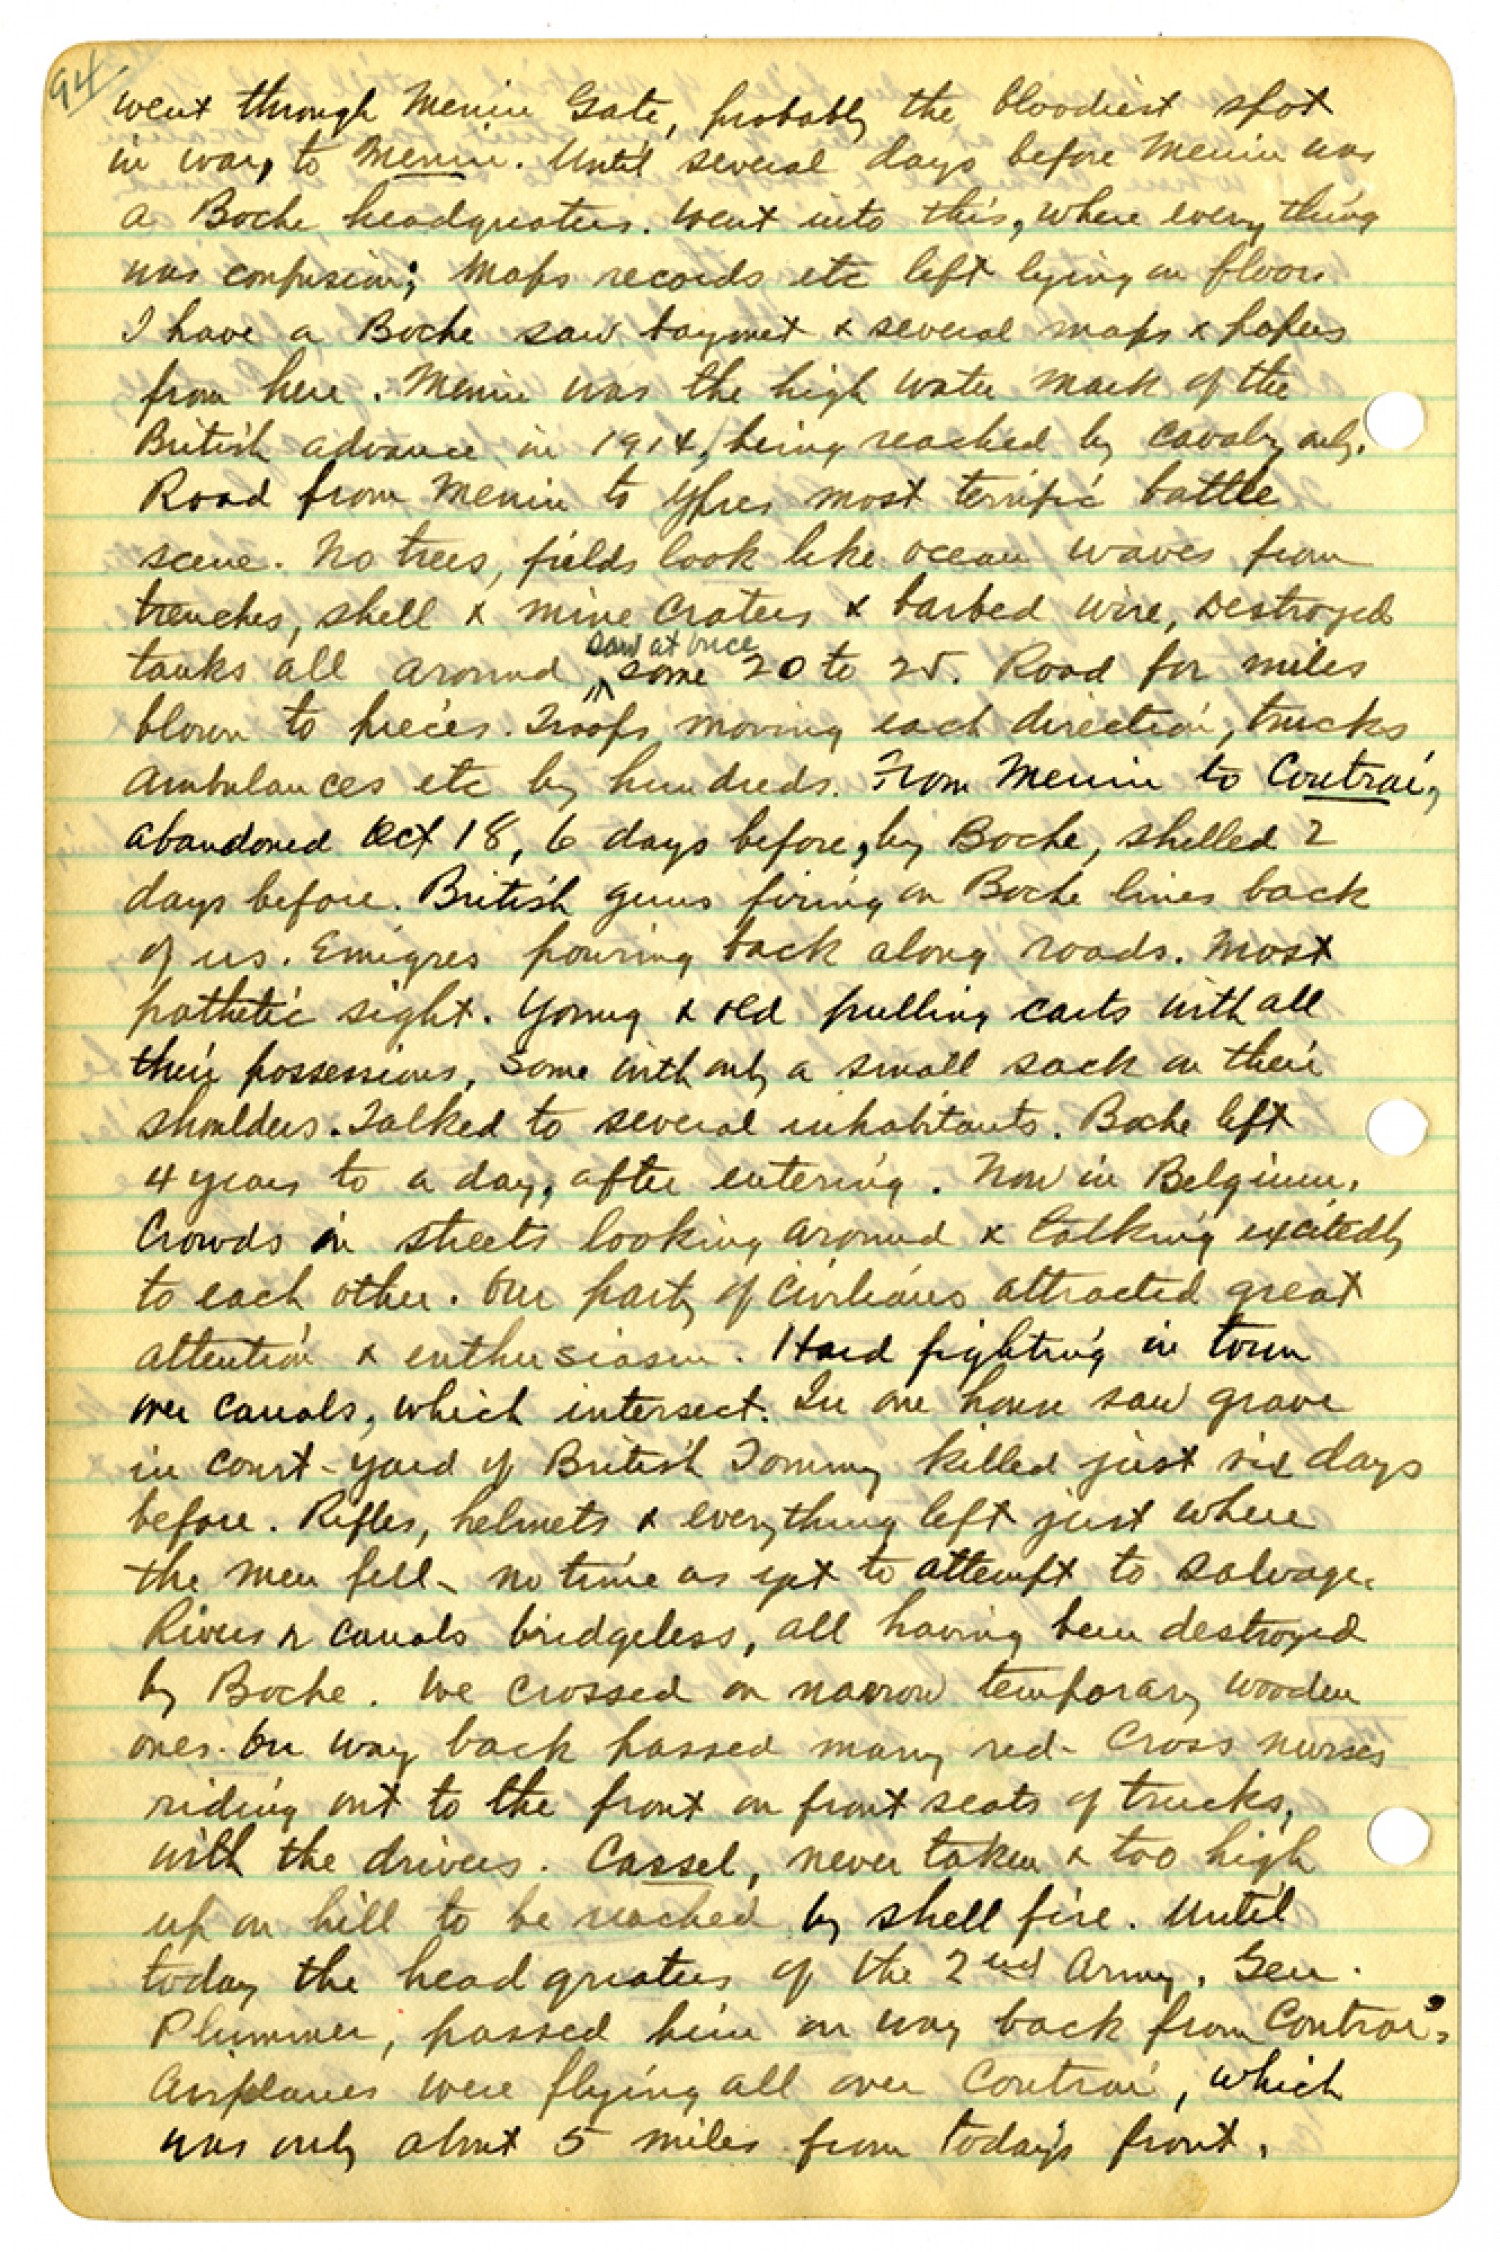 94
went through Menin Gate, probably the bloodiest spot
in war, to Menin. Until several days before Menin was
a Boche headquaters. Went into this, where every thing
was confusion; maps records etc left lying on floors
I have a Boche saw bayonet & several maps & papers
from here. Menin was the high water mark of the
British advance in 1914, being reached by cavalry only.
Road from Menin to Ypres most terrific battle
scene. No trees, fields look like ocean waves from
trenches, shell & mine craters & barbed wire, Destroyed
tanks all around saw at once some 20 to 25. Road for miles
blown to pieces. Troops moving each direction, trucks
ambulances etc by hundreds. From Menin to Coutrai,
abandoned Oct 18, 6 days before, by Boche, shelled 2
days before. British guns firing on Boche lines back
of us. Emigres pouring back along roads. Most
pathetic sight. Young & old pulling carts with all
their possessions, some with only a small sack on their
shoulders. Talked to several inhabitants. Boche left
4 years to a day, after entering. Now in Belgium.
Crowds in streets looking around & talking excitedly
to each other. Our party of civilians attracted great
attention & enthusiasm. Hard fighting in town
over canals, which intersect. In one house saw grave
in court-yard of British Tommy killed just six days
before. Rifles, helmets & everything left just where
the men fell - no time as yet to attempt to salvage.
Rivers & canals bridgeless, all having been destroyed
by Boche. We crossed on narrow temporary wooden
ones. On way back passed many red-cross nurses
riding out to the front on front seats of trucks,
with the drivers. Cassel, never taken & too high
up on hill to be reached by shell fire. Until
today the headquaters of the 2nd Army. Gen.
Plummer, passed him on way back from Coutrai.
Airplanes were flying all over Coutrai, which
was only about 5 miles from today's front.